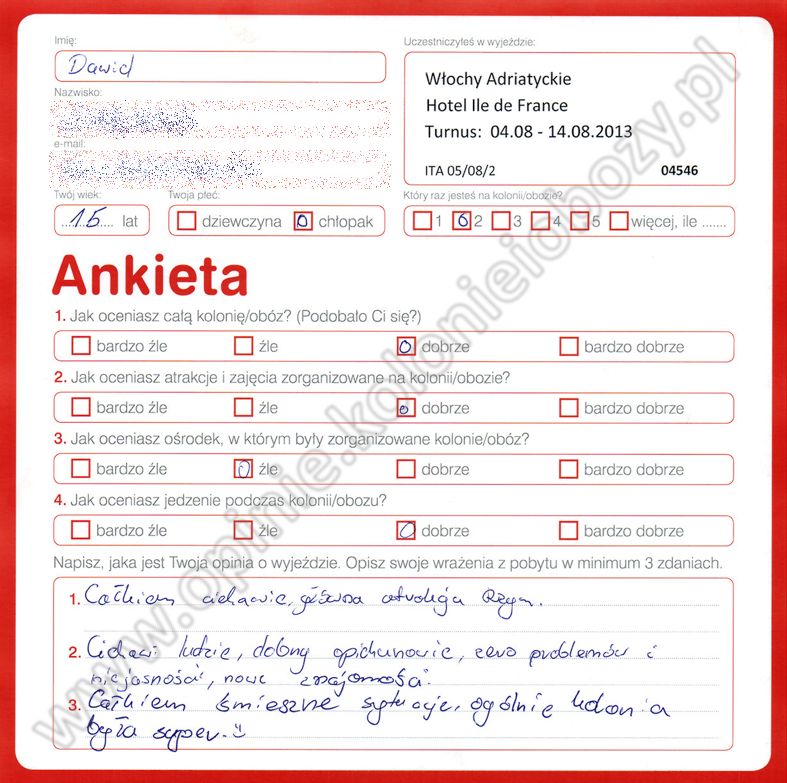 Imię:
Dawid
Uczestniczyłeś w wyjeździe:
Włochy Adriatyckie
Hotel Ile de France
Turnus: 04.08 - 14.08.2013
ITA 05/08/2 04546
Nazwisko:
e-mail:
Twój wiek:
15 lat
Twoja płeć:
dziewczyna chłopak
Który raz jesteś na kolonii/obozie?
1 2 3 4 5 więcej, ile .......
Ankieta
1. Jak oceniasz całą kolonię/obóz? (Podobało Ci się?)
bardzo źle źle dobrze bardzo dobrze
2. Jak oceniasz atrakcje i zajęcia zorganizowane na kolonii/obozie?
bardzo źle źle dobrze bardzo dobrze
3. Jak oceniasz ośrodek, w którym były zorganizowane kolonie/obóz?
bardzo źle źle dobrze bardzo dobrze
4. Jak oceniasz jedzenie podczas kolonii/obozu?
bardzo źle źle dobrze bardzo dobrze
Napisz, jaka jest Twoja opinia o wyjeździe. Opisz swoje wrażenia z pobytu w minimum 3 zdaniach.
1. Całkiem ciekawie, główna atrakcja Rzym.
2. Ciekawi ludzie, dobrzy opiekunowie, zero problemów i
niejasności, nowe znajomości.
3. Całkiem śmieszne sytuacje, ogólnie kolonia
była super. :)
www.opinie.kolonieiobozy.pl